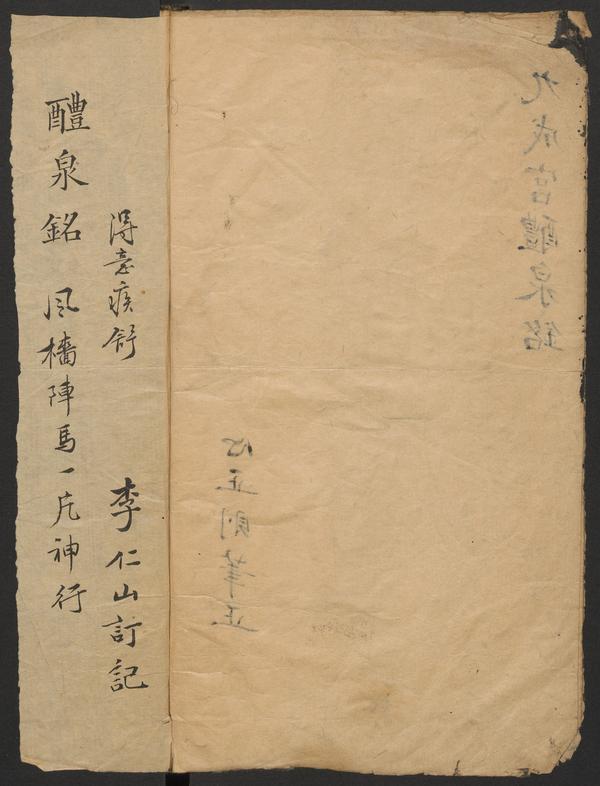 九成宮醴泉銘
心正則筆正
得意疾舒 李仁山訂記
醴泉銘 風檣陣馬一片神行